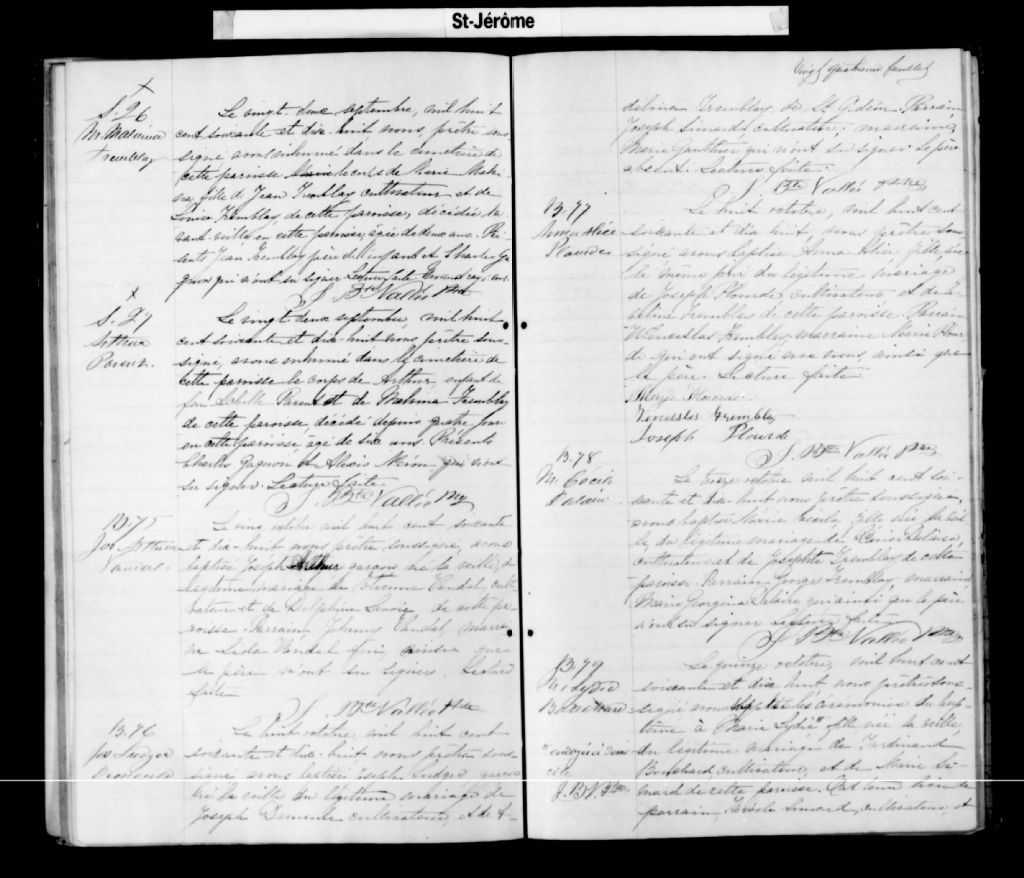 St-Jérôme
S. 26
M. Malvina
Tremblay
Le vingt-deux septembre, mil huit
cent soixante et dix-huit nous, prêtre sous-
signé avons inhumé dans le cimetière de
cette paroisse le corps de Marie Malvi-
na, fille de Jean Tremblay cultivateur et de
Louise Tremblay, de cette paroisse, décédée l'a-
vant-veille en cette paroisse, agée de deux ans. Pré-
sents Jean Tremblay père de l'enfant et Charles Ga-
gnon qui n'ont su signer Lecture faite
J. Bte Vallée Ptre
S. 27
Arthur
Parent.
Le vingt-deux septembre, mil huit
cent soixante et dix-huit nous prêtre sous-
signé, avons inhumé dans le cimetière de
cette paroisse le corps de Arthur, enfant de
feu Parent et de Malvina Tremblay
de cette paroisse, décédé depuis quatre jours
en cette paroisse, âgé de six ans. Présents
Charles Gagnon et Alexis qui n'ont
su signer. Lecture faite
J. Bte Vallée Ptre
B. 75
Jos. Arthur
Vandal
Le cinq octobre mil huit cent soixante
et dix-huit nous prêtre soussigné, avons
baptisé Joseph Arthur garçon né la veille, du
légitime mariage de Etienne Vandal culti-
vateur et de Delphine de cette pa-
roisse. Parrain Johnny Vandal marrai-
ne Leda Vandal qui, ainsi que
le père n'ont su signer. Lecture
faite
J. Bte Vallée Ptre
B. 76
Jos Ludger
Le huit octobre, mil huit cent
soixante et dix-huit nous prêtre sous-
signé avons baptisé Joseph Ludger garçon
né la veille du légitime mariage de
Joseph cultivateur, et de A-
Vingt quatrième feuillet
délina Tremblay de St Gédéon. Parrain,
Joseph Simard cultivateur; marraine,
Marie Gauthier qui n'ont su signer le père
absent. Lecture faite.
J. Bte Vallée Ptre
B. 77
Anna Alice
Plourde
Le huit octobre, mil huit cent
soixante et dix-huit, nous prêtre sous-
signé avons baptisé Anna Alice fille née
le même jour du légitime mariage
de Joseph Plourde cultivateur et de
Tremblay de cette paroisse. Parrain
Wenceslas Tremblay, marraine Marie Plour-
de qui ont signé avec nous, ainsi que
le père. Lecture faite
Marie Plourde
Venceslas Tremblay
Joseph Plourde
J. Bte Vallée Ptre
B. 78
M. Cécile
Le treize octobre mil huit cent soi-
xante et dix-huit nous prêtre soussigné,
avons baptisé Marie Cécile, fille née la veil-
le, du légitime mariage de
cultivateur et de Josephte Tremblay de cette
paroisse. Parrain George Tremblay, marraine
Marie Georgina qui ainsi que le père
n'ont su signer Lecture faite
J. Bte Vallée Ptre
B. 79
M. Lydie
Bouchard
"ondoyée à domi-
cile
J. B V. Ptre
Le quinze octobre, mil huit cent
soixante et dix huit nous prêtre sous-
signé avons suppléé les cérémonies du bap-
tême à Marie Lydie" fille née la veille,
du légitime mariage de Ferdinand
Bouchard cultivateur, et de Marie Si-
mard de cette paroisse. Ont tenu lieu de
parrain, Simard, cultivateur, et